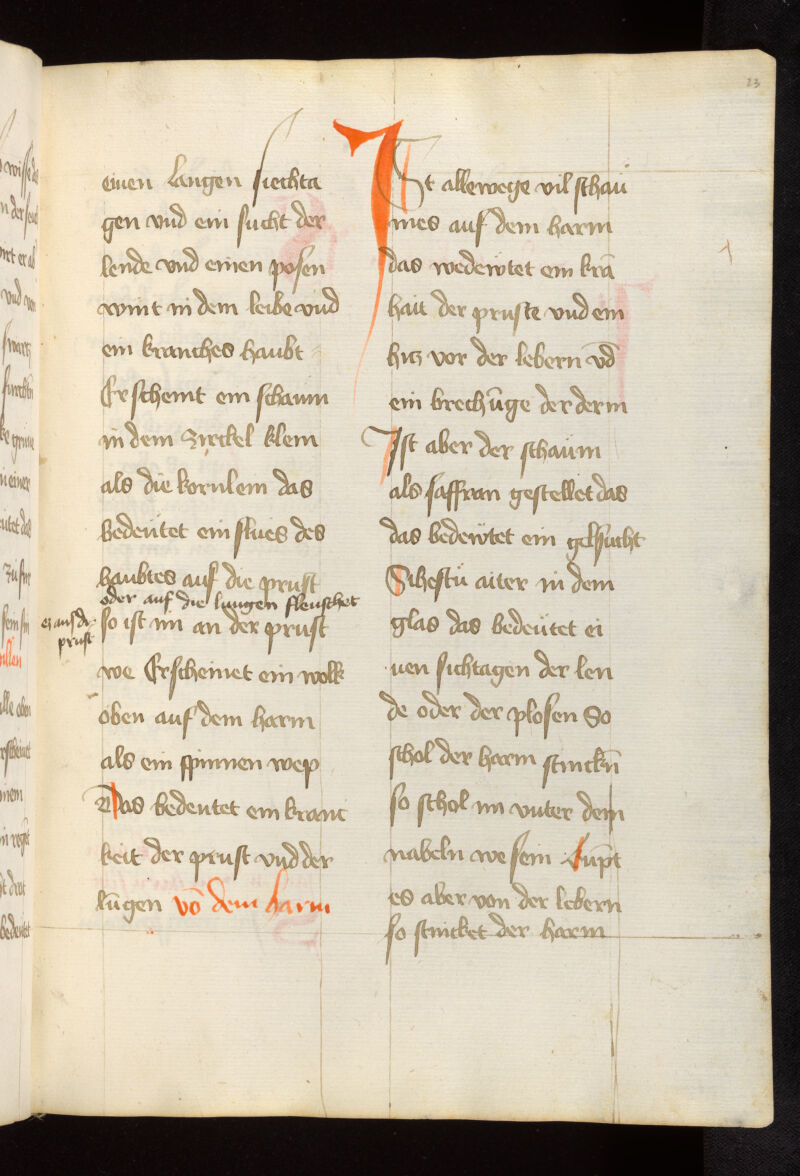 23
einen langen siechta
gen vnd ein sucht der
lende vnd einen posen
wint in dem leibe vnd
ein kranches haubt
Erscheint ein schaum
in dem zirckel klein
als die kornlein das
bedeutet ein flues des
haubtes auf die prust
oder auf die lungen fleuschet
so ist im an der prust
prust
we Erscheinet ein wolk
oben auf dem harm
als ein spinnen wep
Das bedeutet ein kranc
keit der prust vnd der
lūgen vō dem harm
ISt allewege vil schau
mes auf dem harm
das wedewtet ein krā
hait der pruste vnd ein
hitz vor der lebern vd̄
ein brechūge der derm
Ist aber der schaum
als saffran gestellet das
das bedewtet ein gelsucht
Sihestu aiter in dem
glas das bedeutet ei
nen sichtagen der len
de oder der plosen So
schol der harm stinckn̄
so schol im vnter dem
nabeln we sein kūpt
es aber von der lebern
so stincket der harm